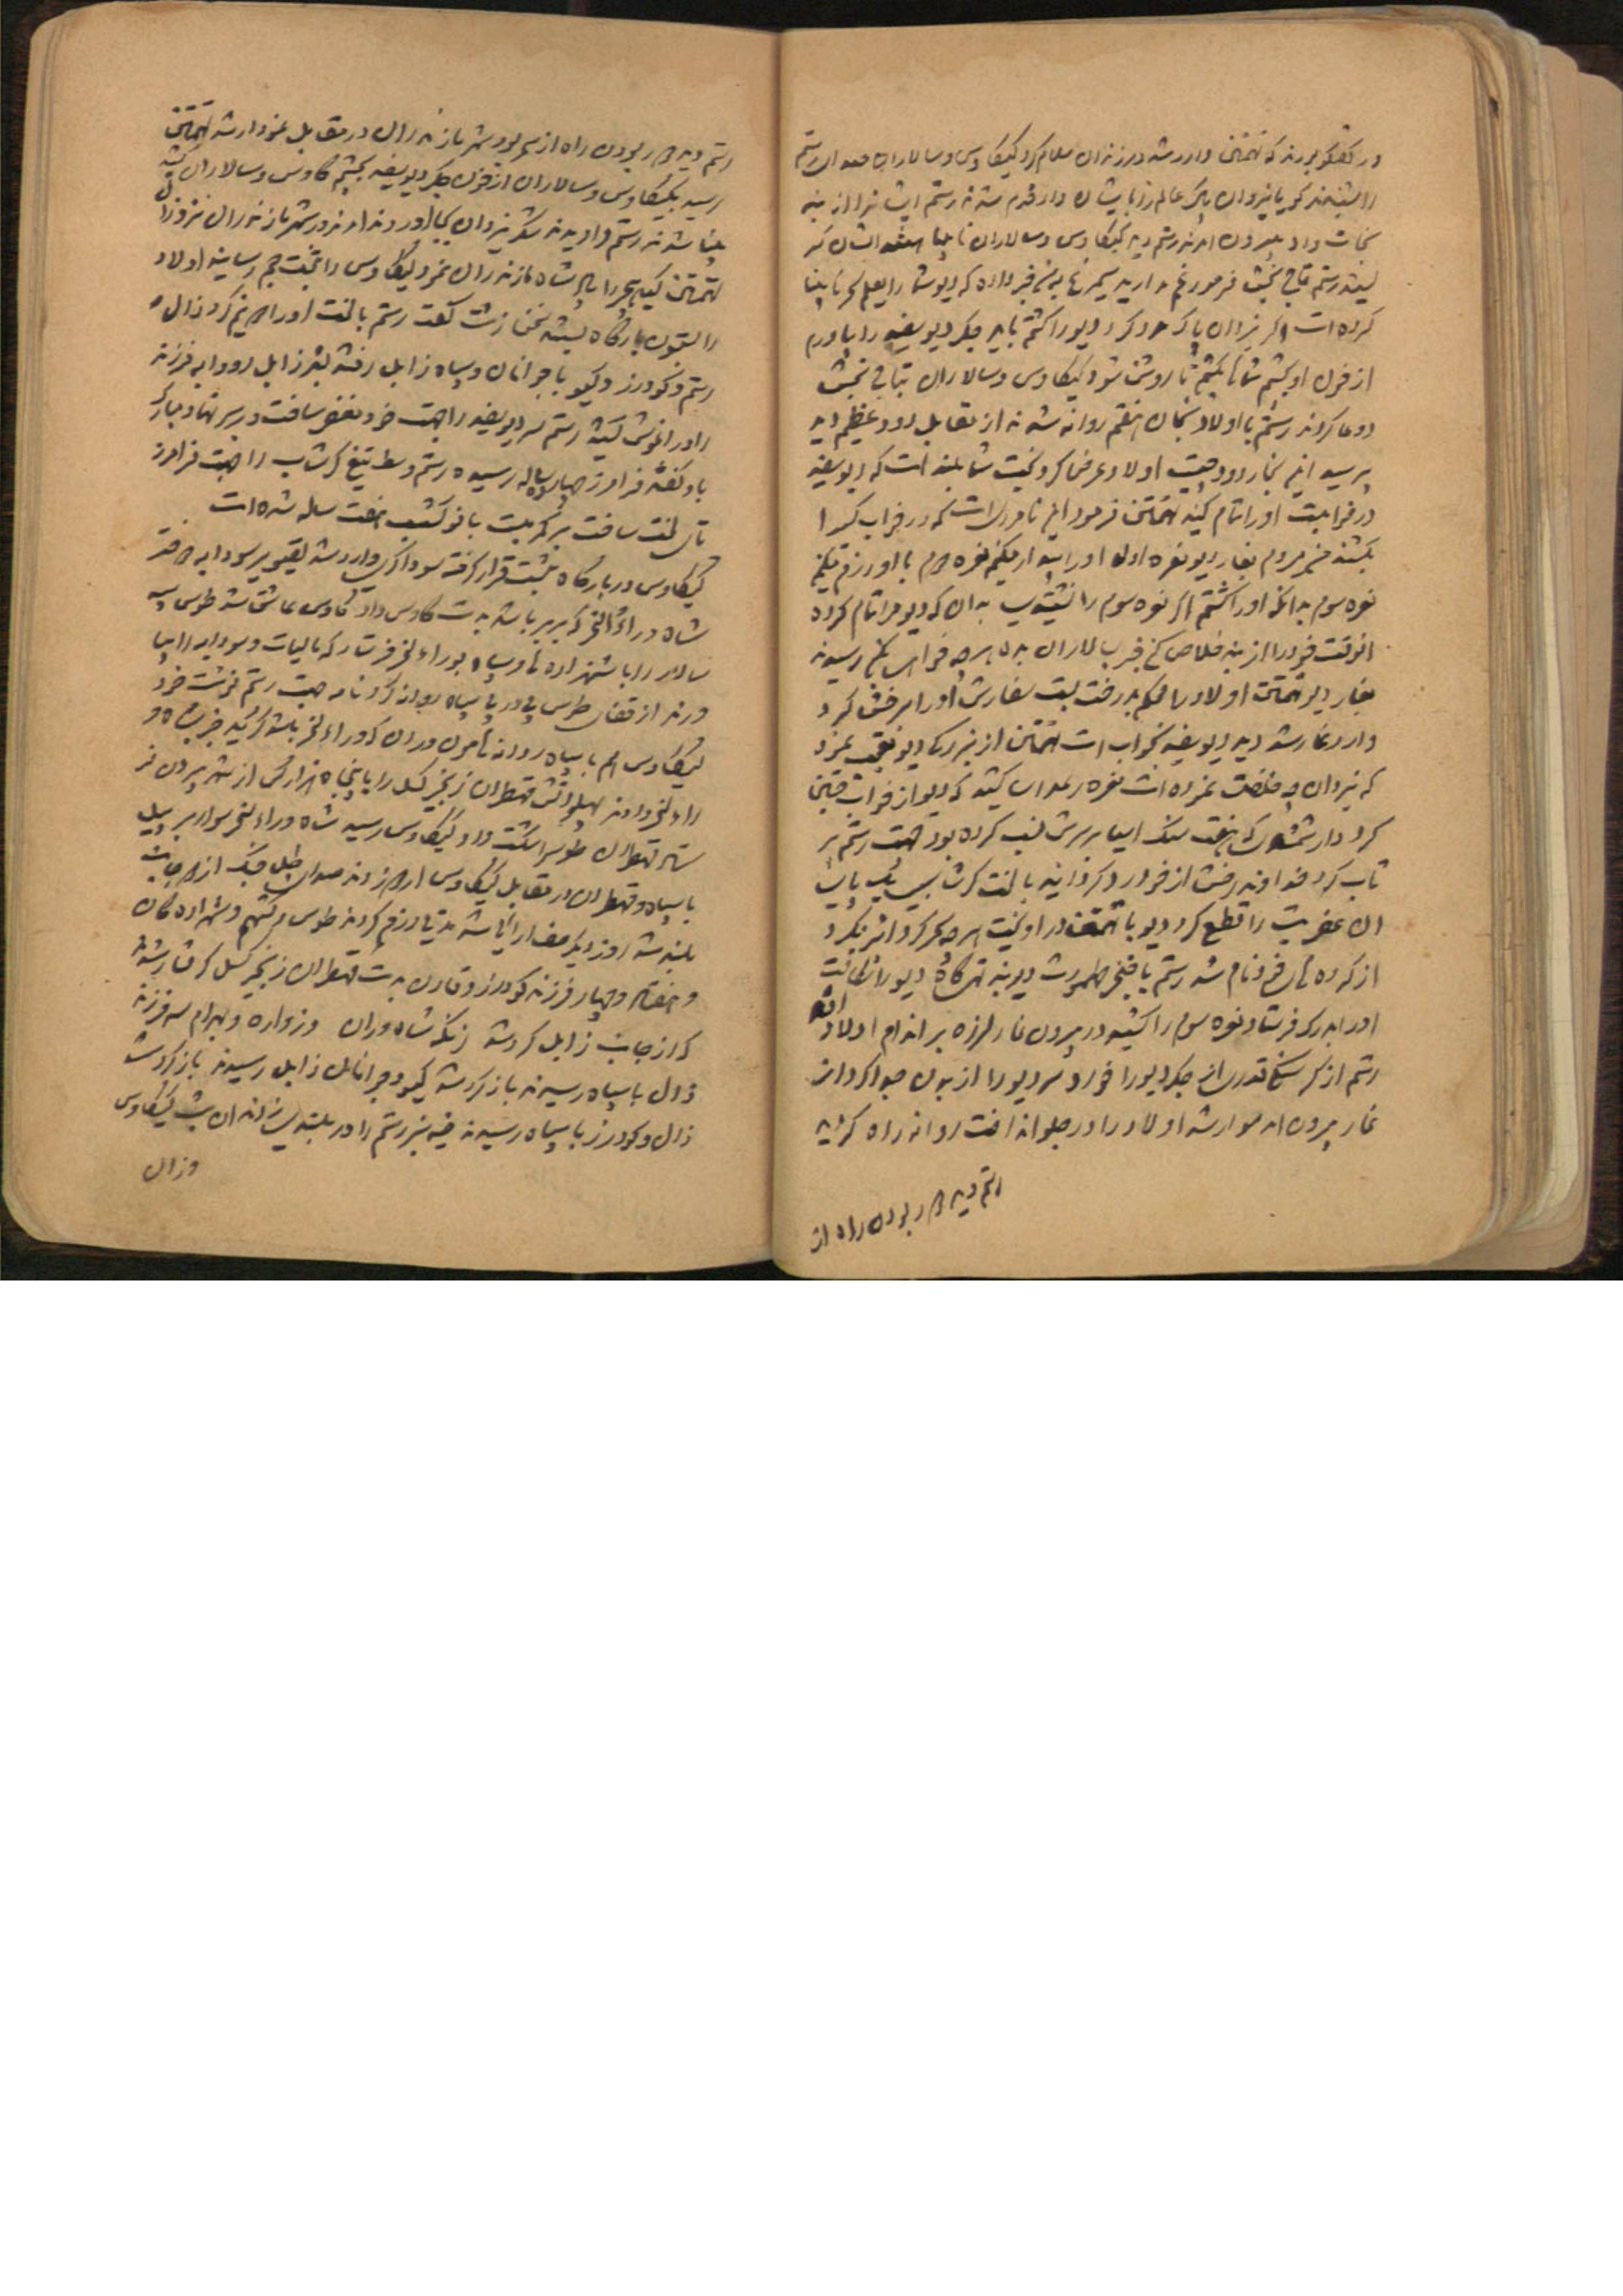 در گفتگو بودند که تهمتن وارد شد در زندان سلام کرد کیکاوس و سالاران صدای رستم
را شنیدند گویا یزدان پاک عالم را بایشان داد قدم شدند رستم ایشانرا از بند
نجات داد بیرون امدند رستم دید کیکاوس و سالاران نابینا
رستم تاج بخش فرمود غم مدارید سیمرغ بمن خبر داده که دیو شما را بعلم سحر نابینا
کرده است اگر یزدان پاک مدد کرد دیو را کشتم باید جگر دیو سفید را بیاورم
از خون او بچشم شما بکشم تا روشن شود کیکاوس و سالاران بتاج بخش
دوعا کردند رستم با اولاد بخان هفتم روانه شدند از مقابل دود عظیم دید
پرسید این بخار دود چیست اولاد عرض کرد بخت شما بلند است که دیو سفید
در خوابست او را تمام کنید تهمتن فرمود این نامردی است که در خواب کسی را
بکشند من میروم بغار دیو نعره اول او را بیدار میکنم نعره دوم با او رزم میکنم
نعره سوم بدانکه او را کشتم اگر نعره سوم را نشنیدی بدان که دیو مرا تمام کرده
انوقت خود را از بند خلاص کن خبر بسالاران بده بهر چه خواهی بکن رسیدند
بغار دیو تهمتن اولاد را محکم بدرخت بست سفارش او را برخش کرد
وارد غار شد دید دیو سفید بخواب است تهمتن از بزرگی دیو تعجب نمود
که یزدان چه خلقت نموده است نعره رعداسا کشید که دیو از خواب جست
کرد دار شمشاد که هفت سنگ اسیا بر سرش نصب کرده بود جهت رستم پر
تاب کرد خداوند رخش از خود رد گردانید با لخت گرشاسب یک پای
ان عفریت را قطع کرد دیو با تهمتن در اویخت هر چه سحر کرد اثر نکرد
از کرده های خود نام شد رستم با خنجر طهمورث دیوبند تهیگاه دیو را شکافت
او را بدرک فرستاد نعره سوم را کشید در بیرون غار لرزه بر اندام اولاد افتاد
رستم از گرسنگی قدری از جگر دیو را خورد سر دیو را از بدن جدا کرد از
غار بیرون امد سوار شد اولاد را در جلو انداخت روانه راه گردید
رستم دید هر بودن راه از
رستم دید هر بودن راه از سحر بود شهر مازندران در مقابل نمودار شد تهمتن
رسید بکیکاوس و سالاران از خون جگر دیو سفید بچشم کاوس و سالاران کشید
بینا شدند رستم را دیدند شکر یزدان بجا اوردند امدند در شهر مازندران نیز وزال
تهمتن کینه جو را شاه مازندران نمود کیکاوس را بتخت جم رسانید اولاد
را بستون بارگاه بست سخن زشت گفت رستم با لخت او را دو نیم کرد زال و
رستم و گودرز و گیو با جوانان و سپاه زابل رفتند بشهر زابل رودابه فرزند
را در اغوش کشید رستم سر دیو سفید را جهت خود مغفر ساخت در سر نهاد مبارک
باد گفتند فرامرز چهار ساله رسیده رستم وسط تیغ گرشاسب را جهت فرامرز
تای لخت ساخت بر کمر بست بانو گشسب هفت ساله شده است
کیکاوس در بارگاه بتخت قرار گرفت سوداگری وارد شد تصویر سودابه دختر
شاه وراء النحر که بربر باشد بدست کاوس داد کاوس عاشق شد طوس سپه
سالار را با شهزاده ها و سپاه بوراء لنحر فرستاد که مالیات و سودابه را بیا
ورند از قفای طوس پی در پی سپاه روانه کرد نامه جهت رستم نوشت خود
کیکاوس هم با سپاه روانه هاماوران که وراء لنحر باشد گردید خبر بشاه و
راء لنحر دادند پهلوانش قهطران زنجیر گسل را با پنجاه هزار کس از شهر بیرون فر
ستاد قهطران طوس را شکست داد کیکاوس رسید شاه وراء لنحر سوار بر پیل
با سپاه و قهطران در مقابل کیکاوس اردو زدند صدای طبل جنگ از دو جانب
بلند شد روز دیگر صف ارائی شد مدتی رزم کردند طوس و گستهم و شهزاده گان
و هفتاد و چهار فرزند گودرز و قارن بدست قهطران زنجیر گسل گرفتار شدند
که از جانب زابل گرد شد زنگه شاه وران و زواره و بهرام سه فرزند
زال با سپاه رسیدند باز گرد شد گیو و جوانان زابل رسیدند باز گرد شد
زال و گودرز با سپاه رسیدند خیمه سبز رستم را در بلندی زدند ان شب کیکاوس
وزال